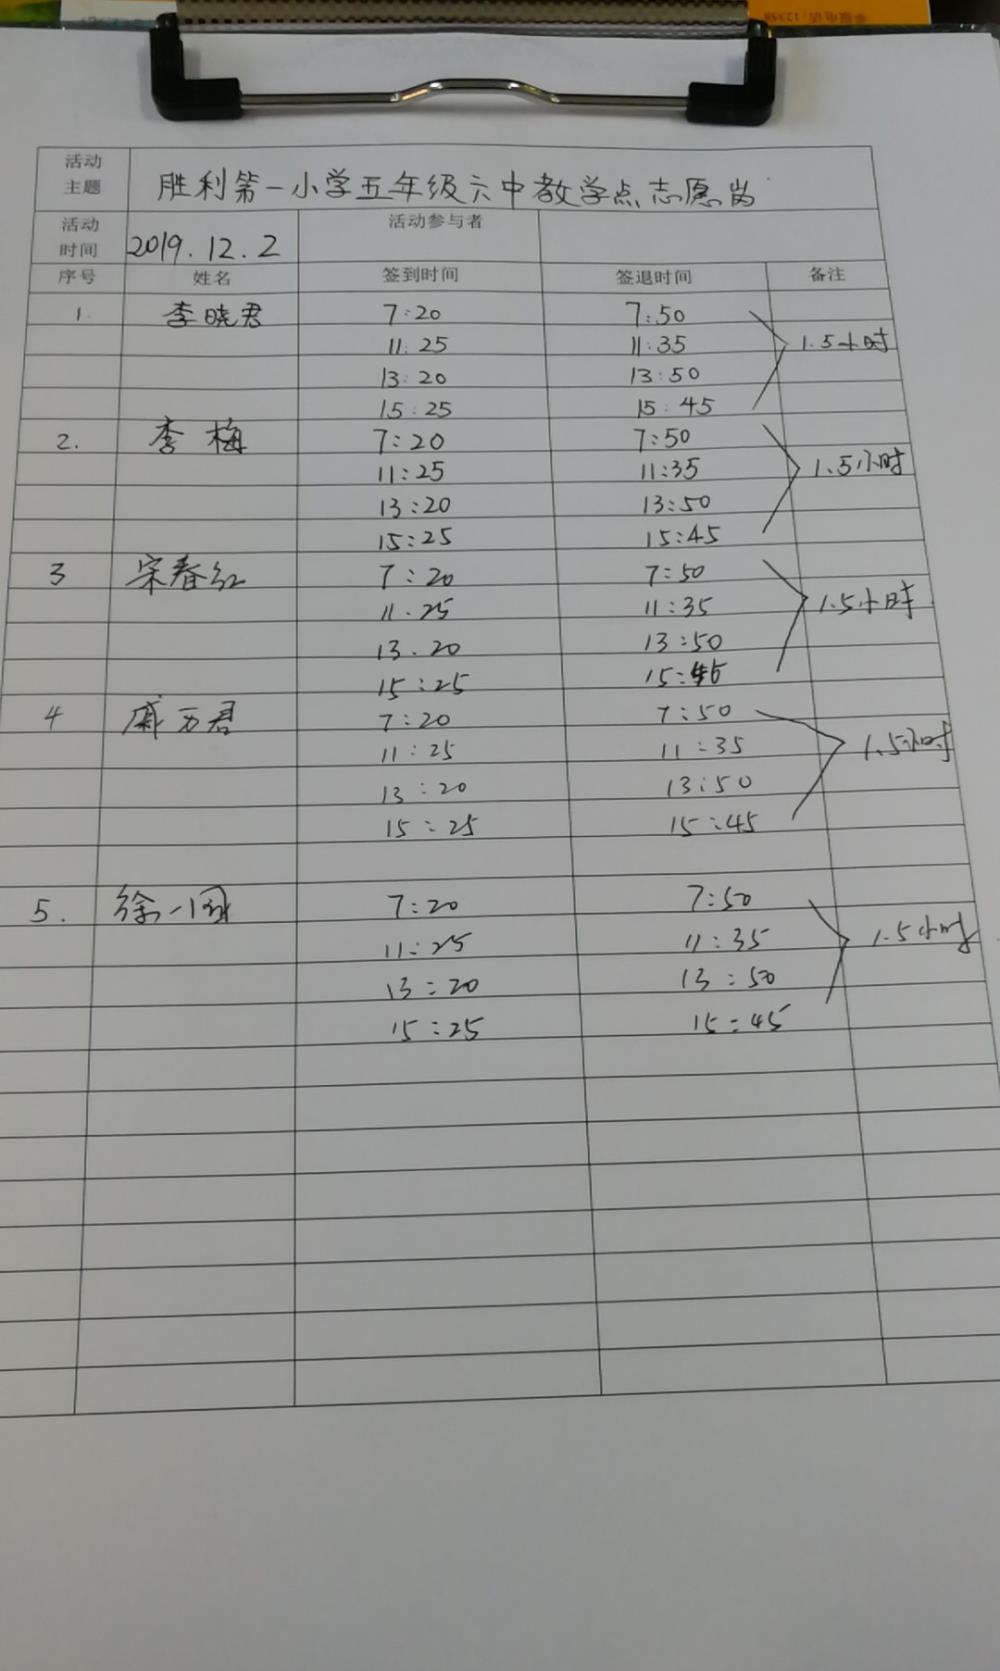 活动主题 胜利第一小学五年级六中教学点志愿岗
活动时间 2019.12.2 活动参与者
序号 姓名 签到时间 签退时间 备注
1. 李晓君 7:20 7:50
11:25 11:35 1.5小时
13:20 13:50
15:25 15:45
2. 李梅 7:20 7:50
11:25 11:35 1.5小时
13:20 13:50
15:25 15:45
3 宋春红 7:20 7:50
11.25 11:35 1.5小时
13.20 13:50
15:25 15:45
4 戚万君 7:20 7:50
11:25 11:35 1.5小时
13:20 13:50
15:25 15:45
5. 徐 7:20 7:50
11:25 11:35 1.5小时
13:20 13:50
15:25 15:45